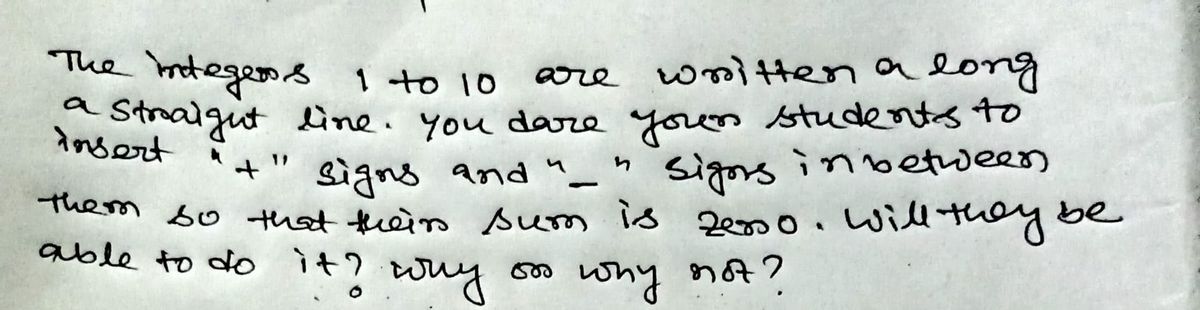 The integers 1 to 10 are written along
a straigut line. you dare your students to
insert "+" signs and "_" signs inbetween
them so that their sum is zero. will they be
able to do it? why or why not?